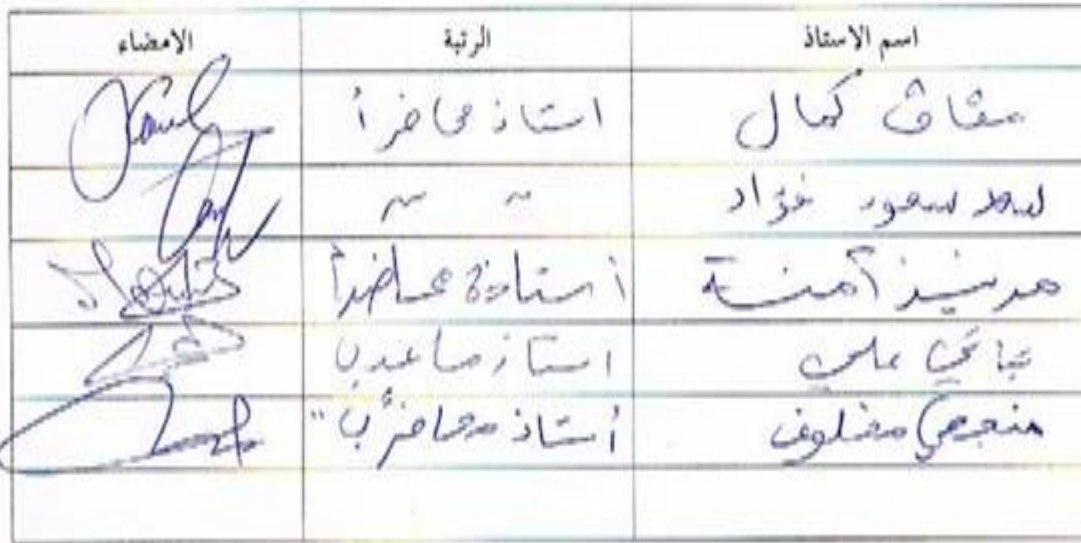 اسم الاستاذ الرتبة الامضاء
مقاق كمال استاذ محاضر أ
سعد سعود فؤاد " "
آمنة أستاذة محاضر أ
علي استاذ مساعد ب
مخلوف أستاذ محاضر ب"